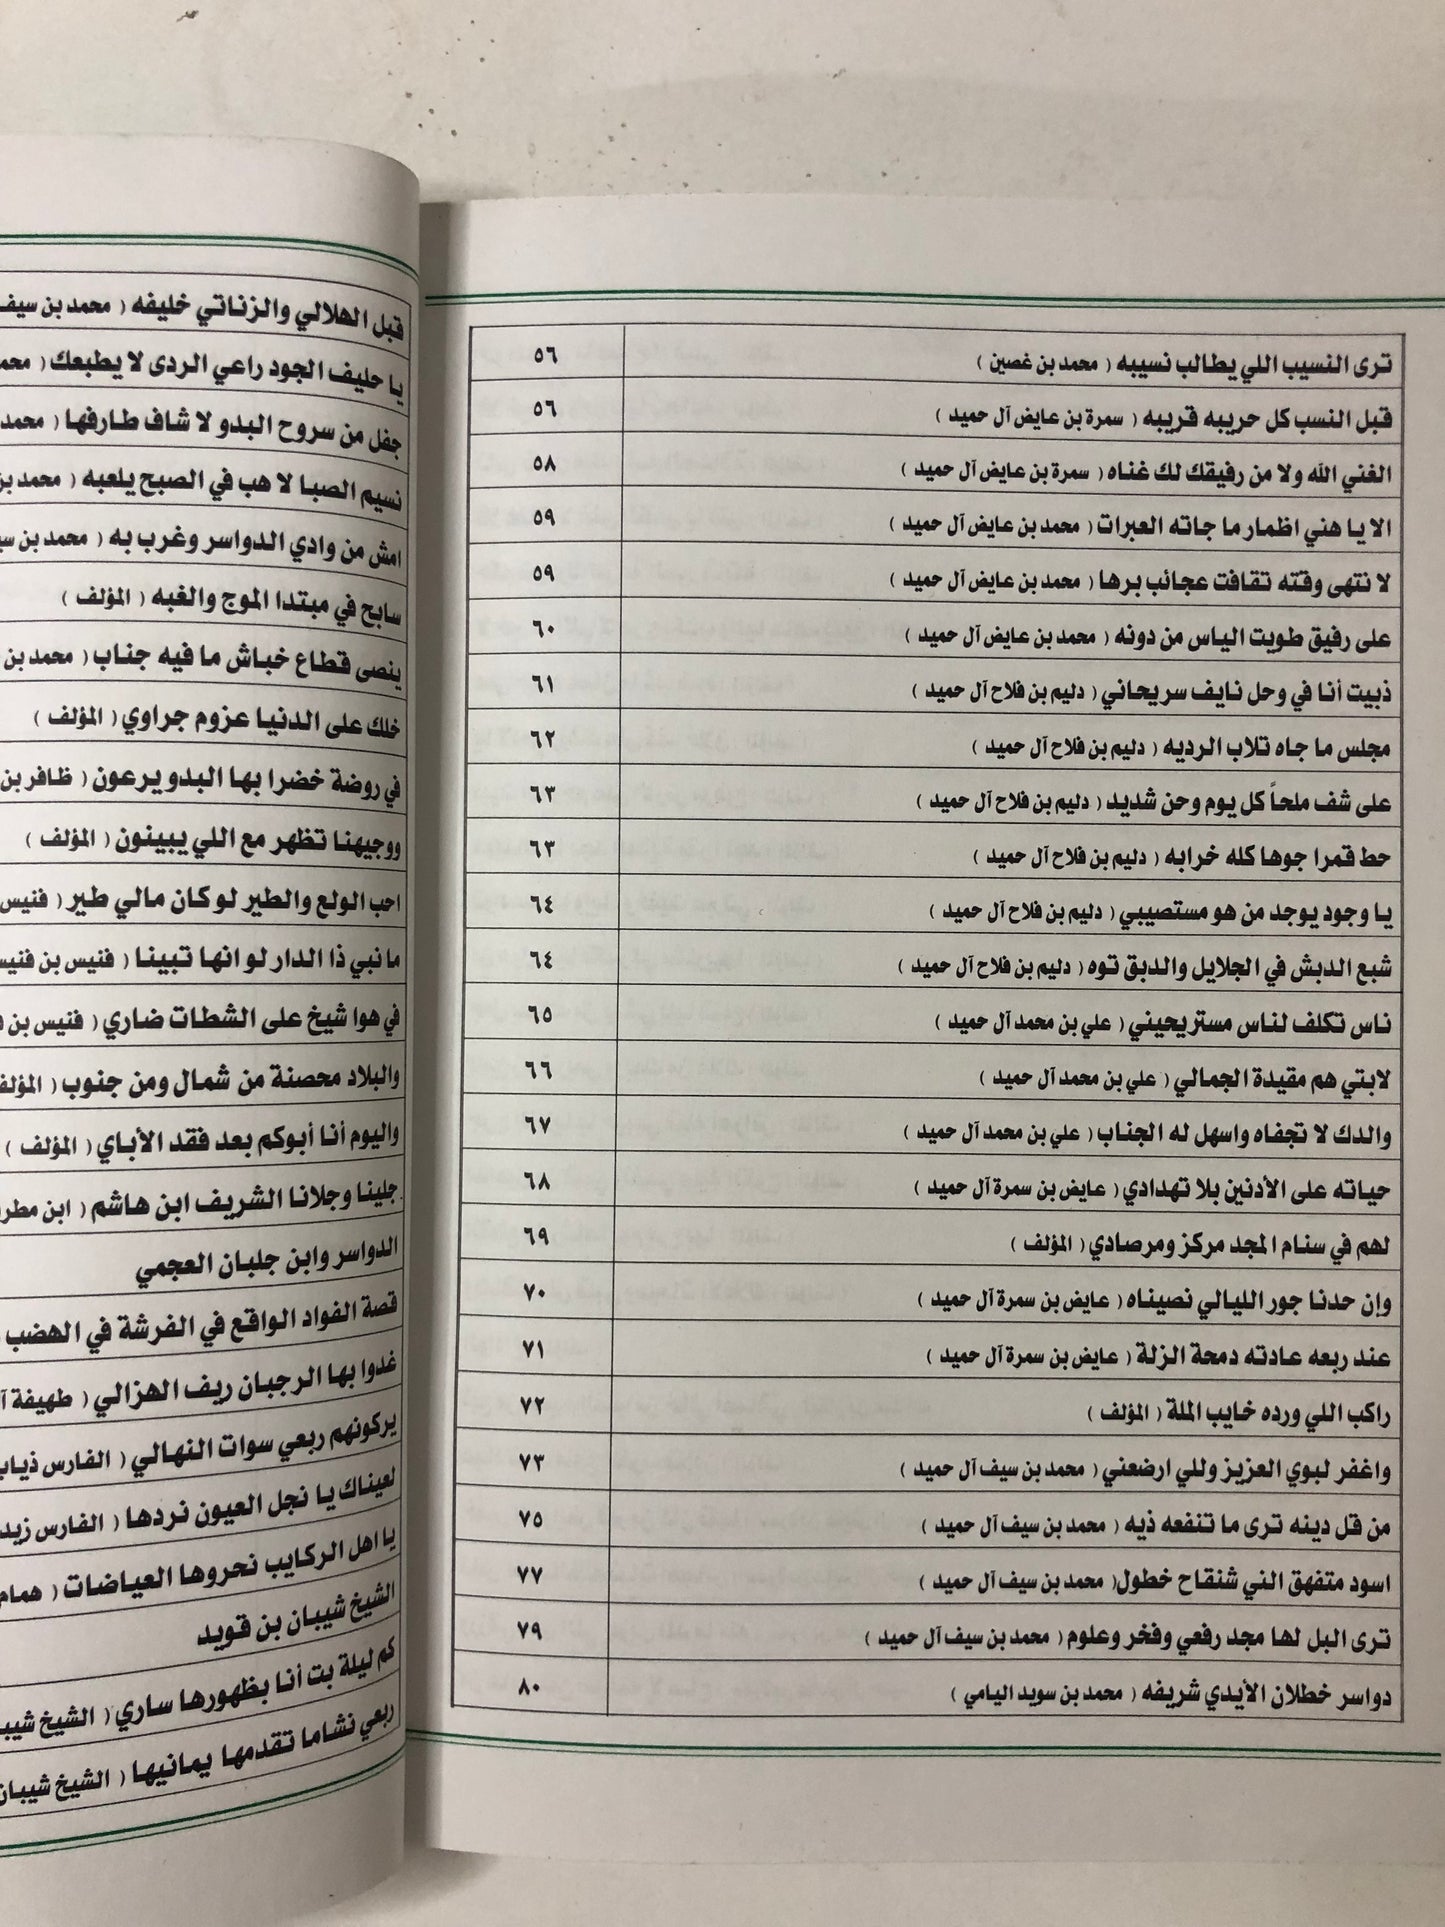 ترى النسيب اللي يطالب نسيبه ( محمد بن غصين ) ٥٦
قبل النسب كل حريبه قريبه ( سمرة بن عايض آل حميد ) ٥٦
الغني الله ولا من رفيقك لك غناه ( سمرة بن عايض آل حميد ) ٥٨
الا يا هني اظمار ما جاته العبرات ( محمد بن عايض آل حميد ) ٥٩
لا نتهى وقته تقافت عجائب برها ( محمد بن عايض آل حميد ) ٥٩
على رفيق طويت الياس من دونه ( محمد بن عايض آل حميد ) ٦٠
ذبيت أنا في وحل نايف سريحاني ( دليم بن فلاح آل حميد ) ٦١
مجلس ما جاه تلاب الرديه ( دليم بن فلاح آل حميد ) ٦٢
على شف ملحاً كل يوم وحن شديد ( دليم بن فلاح آل حميد ) ٦٣
حط قمرا جوها كله خرابه ( دليم بن فلاح آل حميد ) ٦٣
يا وجود يوجد من هو مستصيبي ( دليم بن فلاح آل حميد ) ٦٤
شبع الدبش في الجلايل والدبق توه ( دليم بن فلاح آل حميد ) ٦٤
ناس تكلف لناس مستريحيني ( علي بن محمد آل حميد ) ٦٥
لابتي هم مقيدة الجمالي ( علي بن محمد آل حميد ) ٦٦
والدك لا تجفاه واسهل له الجناب ( علي بن محمد آل حميد ) ٦٧
حياته على الأدنين بلا تهدادي ( عايض بن سمرة آل حميد ) ٦٨
لهم في سنام المجد مركز ومرصادي ( المؤلف ) ٦٩
وإن حدنا جور الليالي نصيناه ( عايض بن سمرة آل حميد ) ٧٠
عند ربعه عادته دمحة الزلة ( عايض بن سمرة آل حميد ) ٧١
راكب اللي ورده خايب الملة ( المؤلف ) ٧٢
واغفر لبوي العزيز وللي ارضعني ( محمد بن سيف آل حميد ) ٧٣
من قل دينه ترى ما تنفعه ذيه ( محمد بن سيف آل حميد ) ٧٥
اسود متفهق الني شنقاح خطول( محمد بن سيف آل حميد ) ٧٧
ترى البل لها مجد رفعي وفخر وعلوم ( محمد بن سيف آل حميد ) ٧٩
دواسر خطلان الأيدي شريفه ( محمد بن سويد اليامي ) ٨٠
قبل الهلالي والزناتي خليفه ( محمد بن سيف
يا حليف الجود راعي الردى لا يطبعك (
جفل من سروح البدو لا شاف طارفها ( محمد
نسيم الصبا لا هب في الصبح يلعبه ( محمد بن
امش من وادي الدواسر وغرب به ( محمد بن
سابح في مبتدا الموج والغبه ( المؤلف )
ينصى قطاع خباش ما فيه جناب ( محمد بن
خلك على الدنيا عزوم جراوي ( المؤلف )
في روضة خضرا بها البدو يرعون ( ظافر بن
ووجيهنا تظهر مع اللي يبينون ( المؤلف )
احب الولع والطير لو كان مالي طير ( فنيس
ما نبي ذا الدار لو انها تبينا ( فنيس بن فنيس
في هوا شيخ على الشطات ضاري ( فنيس بن
والبلاد محصنة من شمال ومن جنوب ( المؤلف
واليوم أنا أبوكم بعد فقد الأباي ( المؤلف )
جلينا وجلانا الشريف ابن هاشم ( ابن
الدواسر وابن جلبان العجمي
قصة الفواد الواقع في الفرشة في الهضب
غدوا بها الرجبان ريف الهزالي ( طهيفة
يركونهم ربعي سوات النهالي ( الفارس ذياب
لعيناك يا نجل العيون نردها ( الفارس زيد
يا اهل الركايب نحروها العياضات ( همام
الشيخ شيبان بن قويد
كم ليلة بت أنا بظهورها ساري ( الشيخ
ربعي نشاما تقدمها يمانيها ( الشيخ شيبان